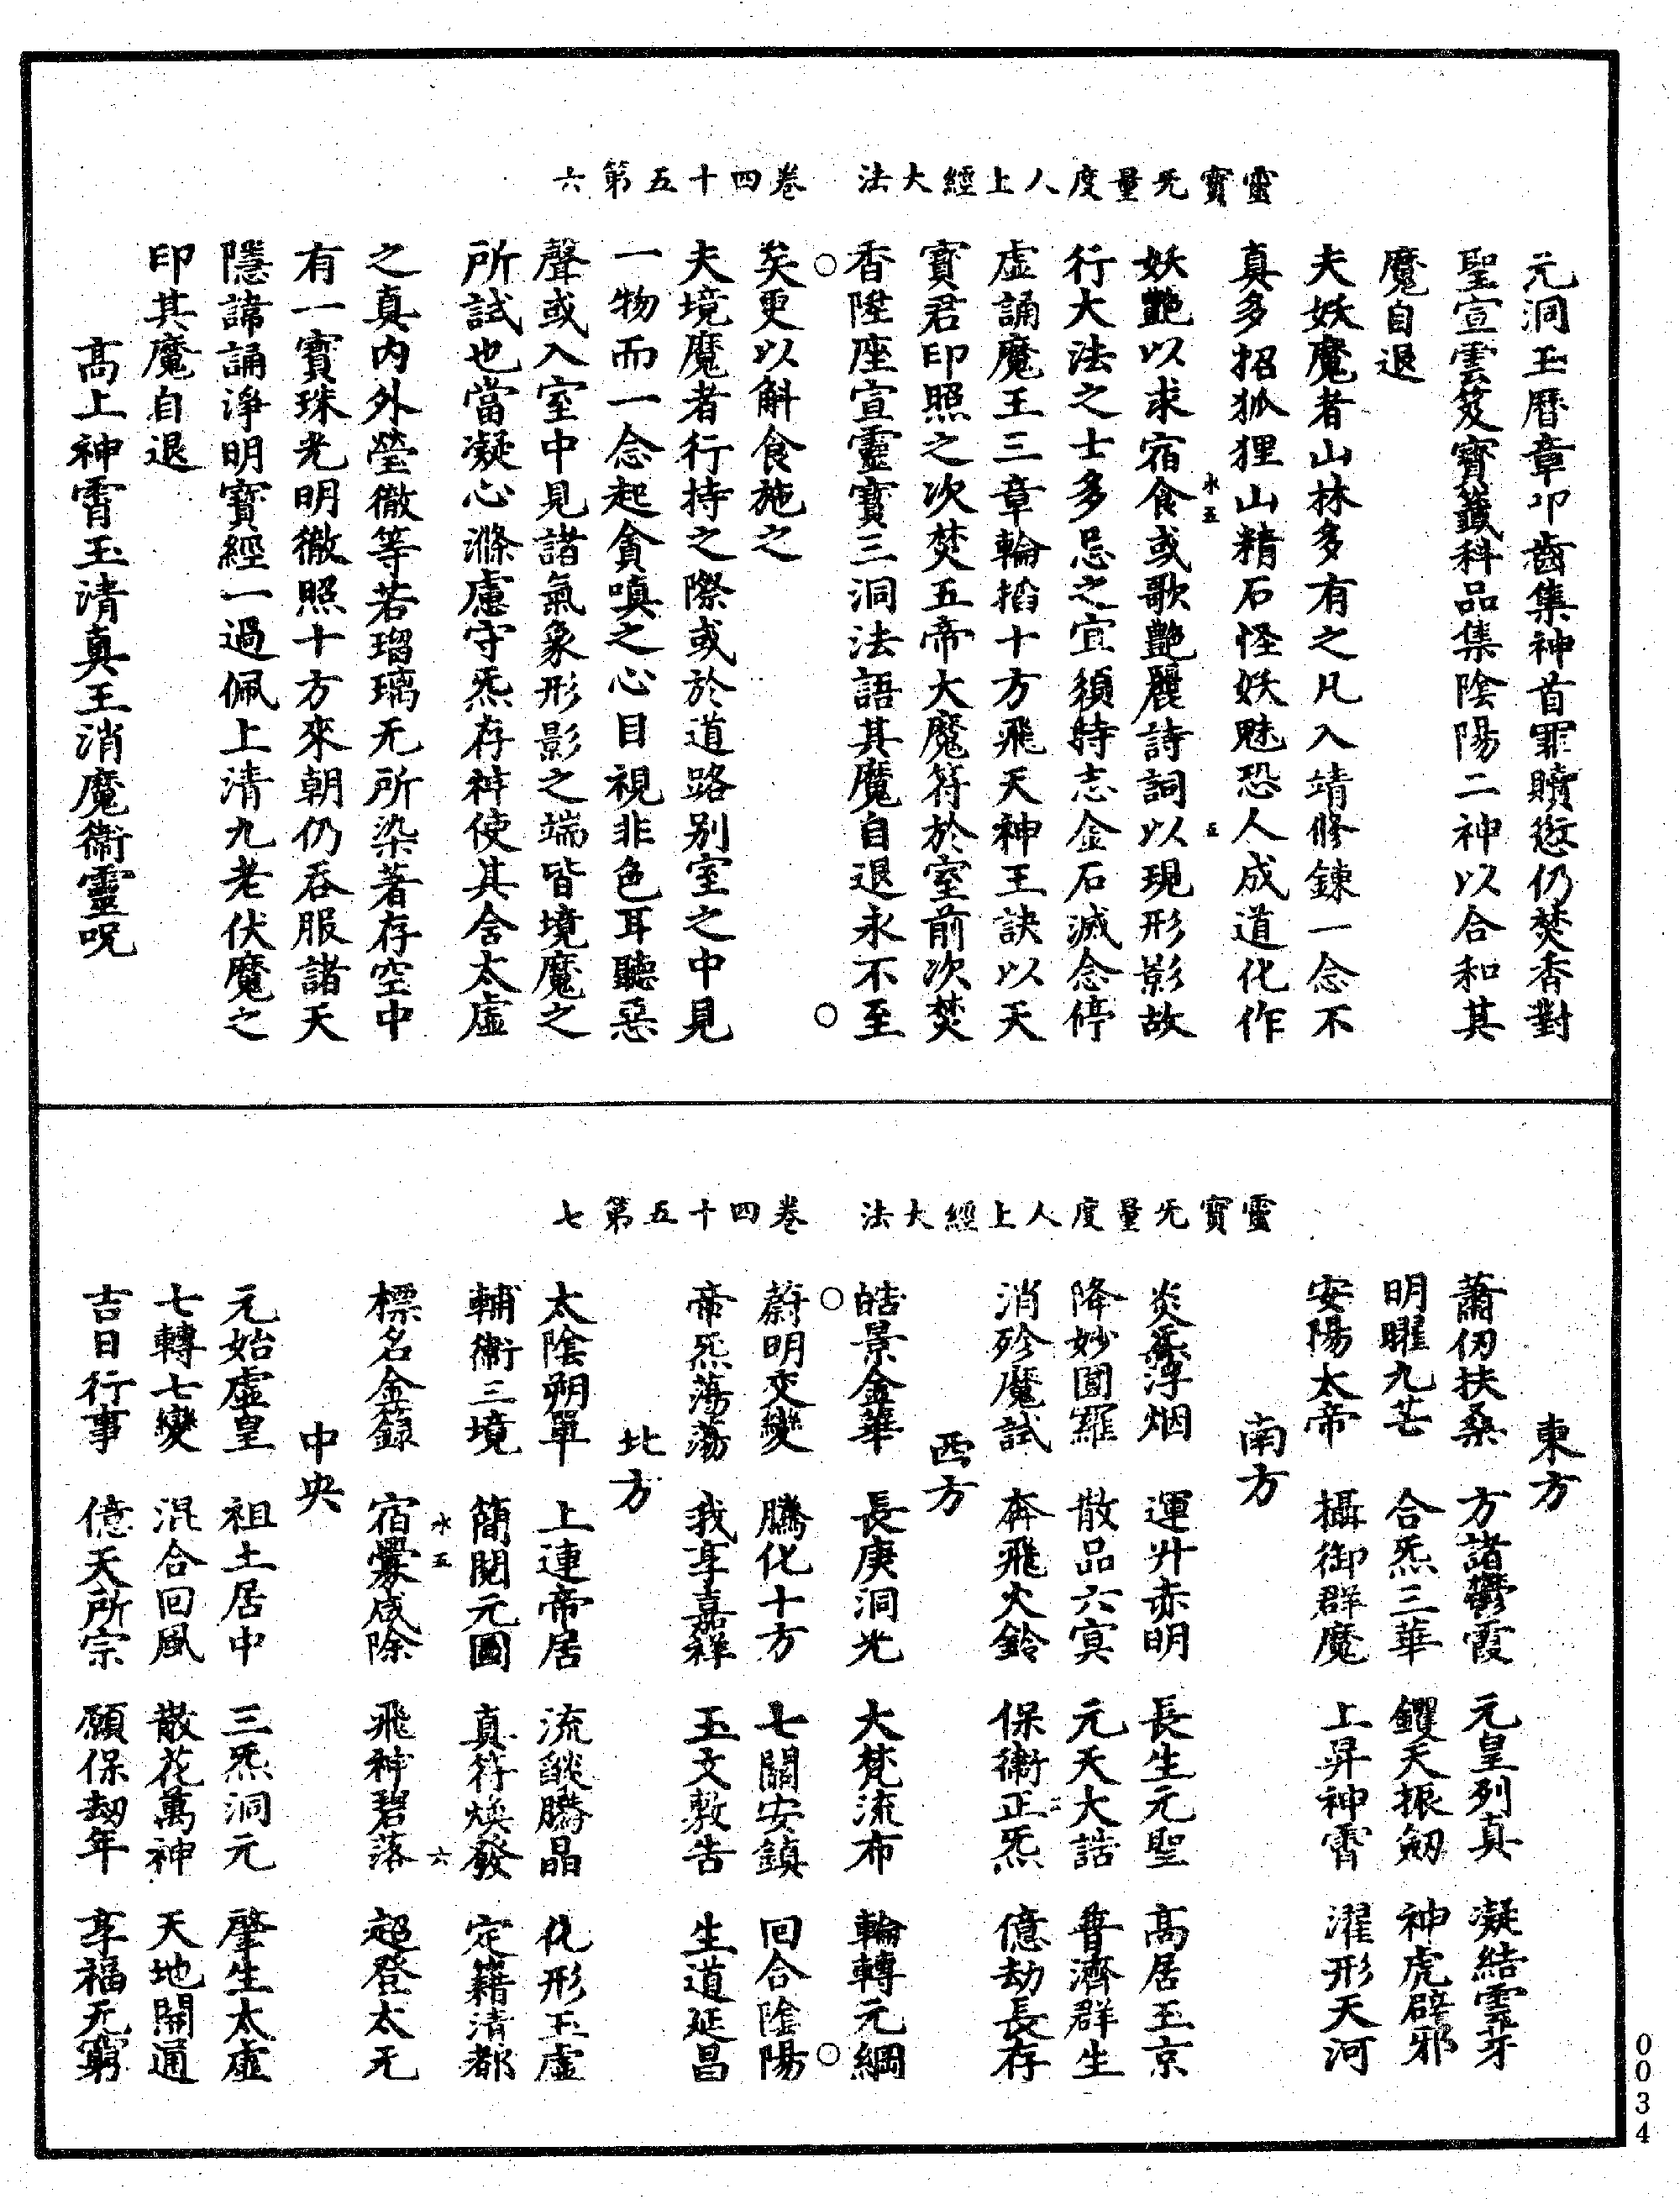 靈寶无量度人上經大法　卷四十五第六
元洞玉曆章叩齒集神首罪贖愆仍焚香對
聖宣雲笈寶籤科品集陰陽二神以合和其
魔自退
夫妖魔者山林多有之凡入靖修鍊一念不
真多招狐狸山精石怪妖魅恐人成道化作
妖艷以求宿食或歌艷麗詩詞以現形影故
行大法之士多忌之宜須持志金石滅念停
虛誦魔王三章輪搯十方飛天神王訣以天
寶君印照之次焚五帝大魔符於室前次焚
香陞座宣靈寶三洞法語其魔自退永不至
矣更以斛食施之
夫境魔者行持之際或於道路別室之中見
一物而一念起貪嗔之心目視非色耳聽惡
聲或入室中見諸氣象形影之端皆境魔之
所試也當凝心滌慮守炁存神使其舍太虛
之真內外瑩徹等若瑠璃无所染著存空中
有一寶珠光明徹照十方來朝仍吞服諸天
隱諱誦淨明寶經一過佩上清九老伏魔之
印其魔自退
高上神霄玉清真王消魔衛靈呪
水五
五
靈寶无量度人上經大法　卷四十五第七
東方
蕭仞扶桑　方諸鬱霞　元皇列真　凝結霊芽
明曜九芒　合炁三華　钁天振劒　神虎辟邪
安陽太帝　攝御群魔　上昇神霄　濯形天河
南方
炎炁浮烟　運灮赤明　長生元聖　高居玉京
降妙圓羅　散品六寅　元天大誥　普濟群生
消殄魔試　奔飛火鈴　保衛正炁　億劫長存
西方
皓景金華　長庚洞光　大梵流布　輪轉元綱
蔚明交變　騰化十方　七關安鎮　回合陰陽
帝炁蕩蕩　我享嘉祥　玉文敷告　生道延昌
北方
太陰朔單　上連帝居　流燄騰晶　化形玉虛
輔衛三境　簡閱元圖　真符煥發　定籍清都
標名金籙　宿釁咸除　飛神碧落　超登太无
中央
元始虛皇　祖土居中　三炁洞元　肇生太虛
七轉七變　混合回風　散花萬神　天地開通
吉日行事　億天所宗　願保劫年　享福无窮
水五
六
0034